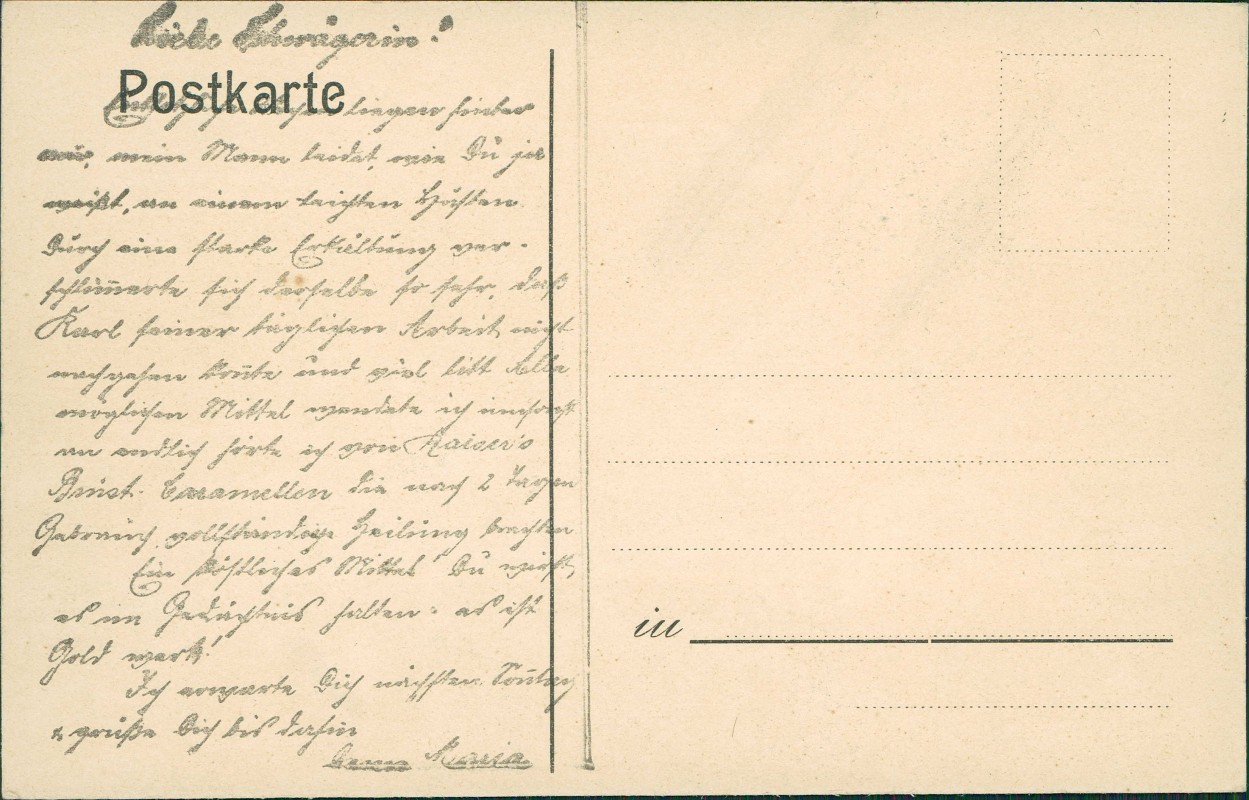 Liebe Schwägerin!
Postkarte
liegen hinter
mir, mein Mann leidet, wie Du ja
weißt, an einem leichten Husten
Durch eine starke Erkältung ver-
schlimmerte sich derselbe so sehr, daß
Karl seiner täglichen Arbeit nicht
nachgehen konnte und viel litt Alle
möglichen Mittel wendete ich umsonst
an endlich hörte ich von Kaiser's
Brust-Caramellen die nach 2 Tagen
Gebrauch vollständige Heilung brachten
Ein köstliches Mittel! Du wirst,
es im Gedächtnis halten: es ist
Gold wert!
Ich erwarte Dich nächsten Sonntag
u grüße Dich bis dahin
Deine Maria
in